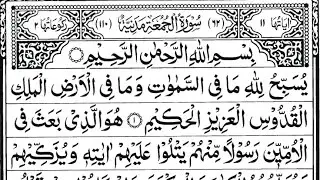 اٰیَاتُهَا ١١ (٦٢) سُوْرَةُ الْجُمُعَةِ مَدَنِيَّةٌ (١١٠) رُكُوْعَاتُهَا ٢
بِسْمِ اللّٰهِ الرَّحْمٰنِ الرَّحِيْمِ
يُسَبِّحُ لِلّٰهِ مَا فِى السَّمٰوٰتِ وَمَا فِى الْاَرْضِ الْمَلِكِ
الْقُدُّوْسِ الْعَزِيْزِ الْحَكِيْمِ ۝ هُوَ الَّذِىْ بَعَثَ فِى
الْاُمِّيّٖنَ رَسُوْلًا مِّنْهُمْ يَتْلُوْا عَلَيْهِمْ اٰيٰتِهٖ وَيُزَكِّيْهِمْ